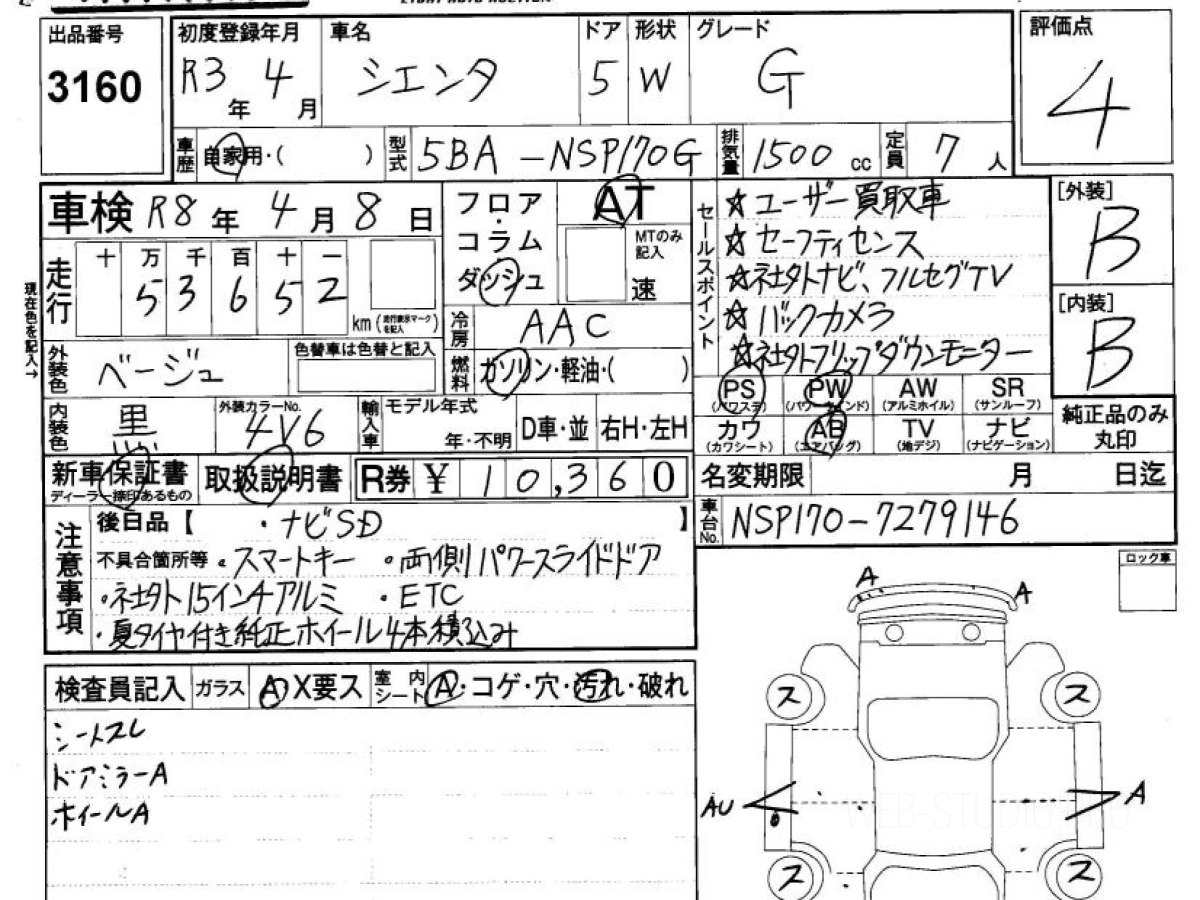 出品番号 初度登録年月 車名 ドア 形状 グレード 評価点
3160 R3年 4月 シエンタ 5 W G 4
車歴 自家用・( ) 型式 5BA-NSP170G 排気量 1500 cc 定員 7 人
車検 R8年 4月 8日
フロア・コラム ダッシュ AT MTのみ記入 速
セールスポイント
☆ユーザー買取車
☆セーフティセンス
☆社外ナビ、フルセグTV
☆バックカメラ
☆社外フリップダウンモニター
[外装] B
[内装] B
現在色を記入→
走行 十 万 千 百 十 一
5 3 6 5 2 km (走行表示マークを記入)
冷房 AAC
外装色 ベージュ 色替車は色替と記入
燃料 ガソリン・軽油・( )
PS (パワステ) PW (パワーウインド) AW (アルミホイル) SR (サンルーフ)
カワ (カワシート) AB (エアバッグ) TV (地デジ) ナビ (ナビゲーション)
純正品のみ丸印
内装色 黒 外装カラーNo. 4V6 輸入車 モデル年式 年・不明 D車・並 右H・左H
新車保証書 ディーラー捺印あるもの 取扱説明書 R券 ¥ 10,360
名変期限 月 日迄
車台No. NSP170-7279146
注意事項
後日品【 ・ナビSD 】
不具合箇所等 ・スマートキー ・両側パワースライドドア
・社外15インチアルミ ・ETC
・夏タイヤ付き純正ホイール4本積込み
ロック車
検査員記入 ガラス A X要ス 室内シート A・コゲ・穴・汚れ・破れ
シートスレ
ドアミラーA
ホイールA
A A
ス ス
AU A
ス ス
WEB-STUDIO.PRO